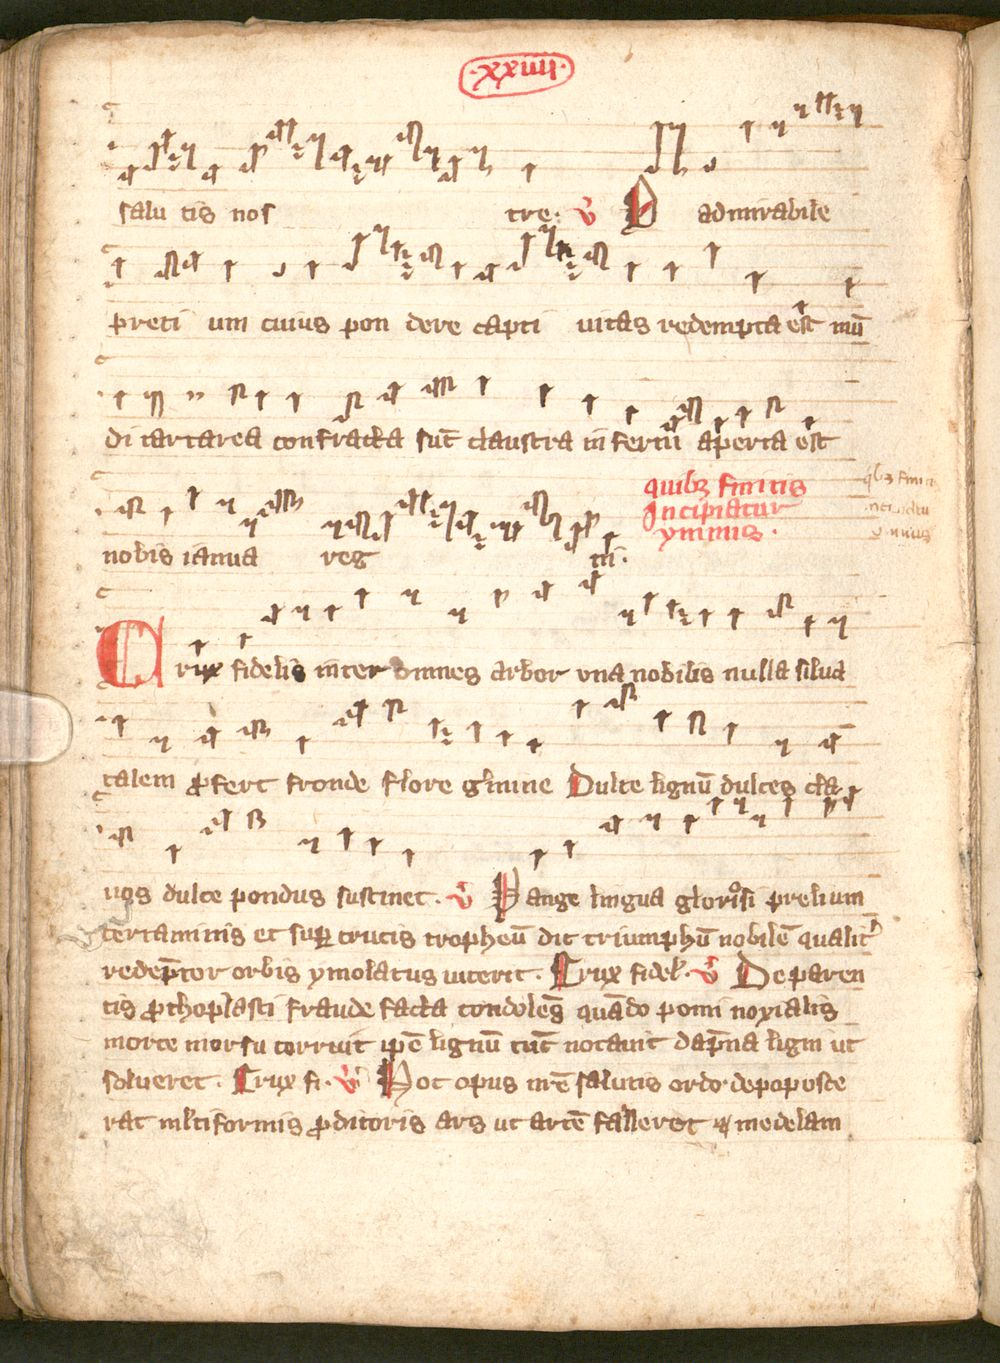 ·xxiiii·
salu tis nos tre· v̄ O admirabile
preti um cuius pon dere capti uitas redempta est mū
di tartarea confracta sūt claustra in fernī aperta est
nobis ianua reg ni·
quibꝫ finitis
Incipiatur
ymnus·
qbꝫ finitis
ymnus
Crux fidelis inter omnes arbor vna nobilis nulla silua
talem ꝓfert fronde flore g̾mine Dulce lignū dulces cla
uos dulce pondus sustinet· v̄ Pange lingua gloriosi prelium
certaminis et suꝑ crucis tropheū dic triumphū nobilē qualit̾
redēptor orbis ymolatus uicerit· Crux fidel̾· v̄ De paren
tis ꝓthoplasti fraude facta condolēs quādo pomi noxialis
morte morsu corruit ipē lignū tūc notauit dāpna ligni ut
solueret· Crux fi· v̄ Hoc opus nrē salutis ordo depoposce
rat ml̾tiformis ꝓditoris ars ut artē falleret ⁊ medelam